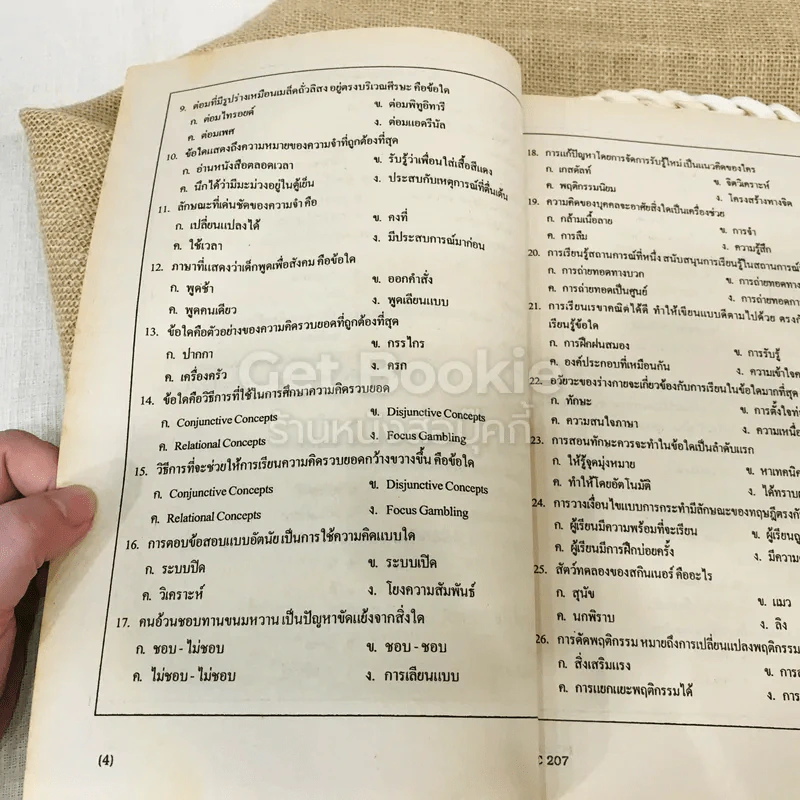 9. ต่อมที่มีรูปร่างเหมือนเมล็ดถั่วลิสง อยู่ตรงบริเวณศีรษะ คือข้อใด
ก. ต่อมไทรอยด์ ข. ต่อมพิทูอิทารี
ค. ต่อมเพศ ง. ต่อมแอดรีนัล
10. ข้อใดแสดงถึงความหมายของความจำที่ถูกต้องที่สุด
ก. อ่านหนังสือตลอดเวลา ข. รับรู้ว่าเพื่อนใส่เสื้อสีแดง
ค. นึกได้ว่ามีมะม่วงอยู่ในตู้เย็น ง. ประสบกับเหตุการณ์ที่ตื่นเต้น
11. ลักษณะที่เด่นชัดของความจำ คือ
ก. เปลี่ยนแปลงได้ ข. คงที่
ค. ใช้เวลา ง. มีประสบการณ์มาก่อน
12. ภาษาที่แสดงว่าเด็กพูดเพื่อสังคม คือข้อใด
ก. พูดซ้ำ ข. ออกคำสั่ง
ค. พูดคนเดียว ง. พูดเลียนแบบ
13. ข้อใดคือตัวอย่างของความคิดรวบยอดที่ถูกต้องที่สุด
ก. ปากกา ข. กรรไกร
ค. เครื่องครัว ง. ครก
14. ข้อใดคือวิธีการที่ใช้ในการศึกษาความคิดรวบยอด
ก. Conjunctive Concepts ข. Disjunctive Concepts
ค. Relational Concepts ง. Focus Gambling
15. วิธีการที่จะช่วยให้การเรียนความคิดรวบยอดกว้างขวางขึ้น คือข้อใด
ก. Conjunctive Concepts ข. Disjunctive Concepts
ค. Relational Concepts ง. Focus Gambling
16. การตอบข้อสอบแบบอัตนัย เป็นการใช้ความคิดแบบใด
ก. ระบบปิด ข. ระบบเปิด
ค. วิเคราะห์ ง. โยงความสัมพันธ์
17. คนอ้วนชอบทานขนมหวาน เป็นปัญหาขัดแย้งจากสิ่งใด
ก. ชอบ - ไม่ชอบ ข. ชอบ - ชอบ
ค. ไม่ชอบ - ไม่ชอบ ง. การเลียนแบบ
(4)
18. การแก้ปัญหาโดยการจัดการรับรู้ใหม่ เป็นแนวคิดของใคร
ก. เกสตัลท์ ข. จิตวิเคราะห์
ค. พฤติกรรมนิยม ง. โครงสร้างทางจิต
19. ความคิดของบุคคลจะอาศัยสิ่งใดเป็นเครื่องช่วย
ก. กล้ามเนื้อลาย ข. การจำ
ค. การลืม ง. ความรู้สึก
20. การเรียนรู้สถานการณ์ที่หนึ่ง สนับสนุนการเรียนรู้ในสถานการณ์
ก. การถ่ายทอดทางบวก ข. การถ่ายทอดทาง
ค. การถ่ายทอดเป็นศูนย์ ง. การถ่ายทอด
21. การเรียนเรขาคณิตได้ดี ทำให้เขียนแบบดีตามไปด้วย
เรียนรู้ข้อใด
ก. การฝึกฝนสมอง ข. การรับรู้
ค. องค์ประกอบที่เหมือนกัน ง. ความเข้าใจ
22. อวัยวะของร่างกายจะเกี่ยวข้องกับการเรียนในข้อใดมากที่สุด
ก. ทักษะ ข. การตั้งใจ
ค. ความสนใจภาษา ง.
23. การสอนทักษะควรจะทำในข้อใดเป็นลำดับแรก
ก. ให้รู้จุดมุ่งหมาย ข. หาเทคนิค
ค. ทำให้โดยอัตโนมัติ ง. ได้ทราบ
24. การวางเงื่อนไขแบบการกระทำมีลักษณะของทฤษฎี
ก. ผู้เรียนมีความพร้อมที่จะเรียน ข. ผู้เรียน
ค. ผู้เรียนมีการฝึกบ่อยครั้ง ง. มีความ
25. สัตว์ทดลองของสกินเนอร์ คืออะไร
ก. สุนัข ข. แมว
ค. นกพิราบ ง. ลิง
26. การดัดพฤติกรรม หมายถึงการเปลี่ยนแปลงพฤติกรรม
ก. สิ่งเสริมแรง ข.
ค. การแยกแยะพฤติกรรมได้ ง. การ
C 207
Get Bookie
ร้านหนังสือบุคกี้